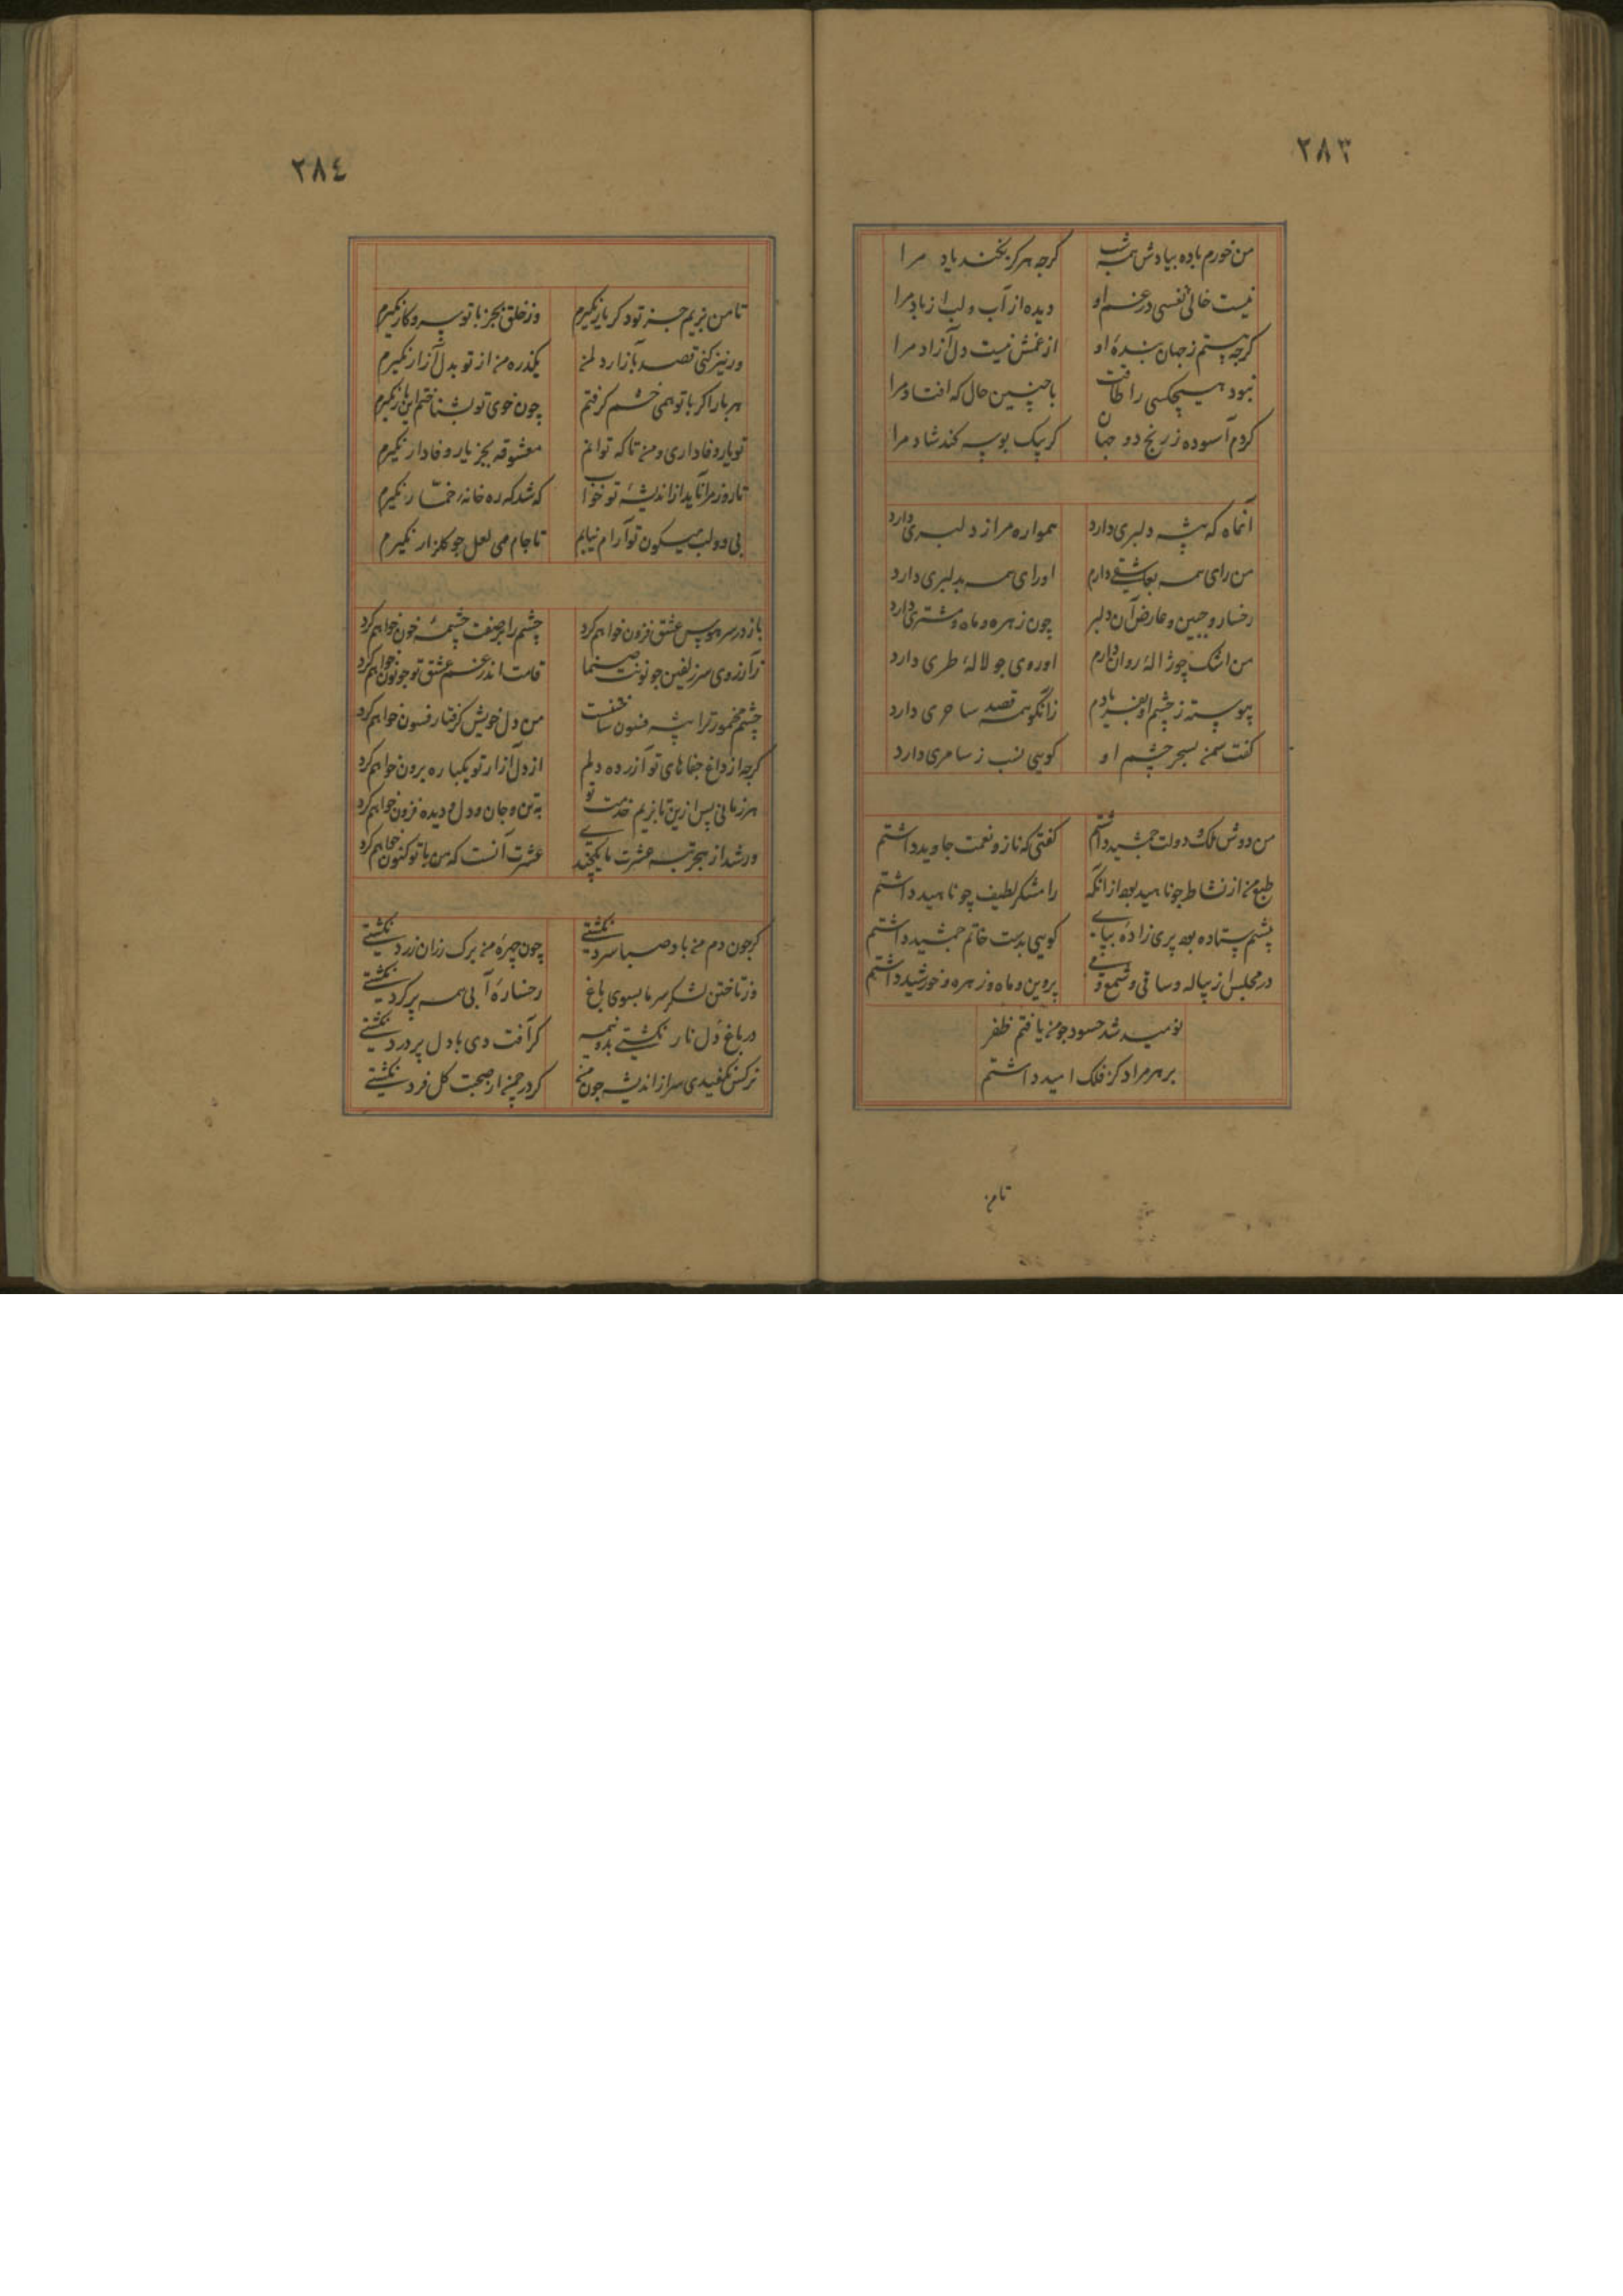 ٢٨٣
من خورم باده بیادش همه شب
کرچه هرکز نکند یاد مرا
نیست خالی نفسی در غم او
دیده از آب و لب از باد مرا
کرچه هستم ز جهان بندهٔ او
از غمش نیست دل آزاد مرا
نبود هیچکسی را طاقت
با چنین حال که افتاد مرا
کردم آسوده ز رنج دو جهان
کر بیک بوسه کند شاد مرا
آنماه که پیشه دلبری دارد
همواره مرا ز دل بری دارد
من رای همه بعاشقی دارم
او رای همه بدلبری دارد
رخسار و جبین و عارض آن دلبر
چون زهره و ماه و مشتری دارد
من اشک چو ژالهٔ روان دارم
او روی چو لالهٔ طری دارد
پیوسته ز چشم او بفریادم
زانکو همه قصد ساحری دارد
کفتست سخن بسحر چشم او
کویی نسب ز سامری دارد
من دوش ملک و دولت جمشید داشتم
کفتی که ناز و نعمت جاوید داشتم
طبع من از نشاط چو ناهید بود از انکه
رامشکر لطیف چو ناهید داشتم
پیشم ستاده بود پری زادهٔ بپای
کویی بدست خاتم جمشید داشتم
در مجلس از پیاله و ساقی و شمع و می
پروین و ماه و زهره و خورشید داشتم
نومید شد حسود چو من یافتم ظفر
بر هر مراد کز فلک امید داشتم
تا من
٢٨٤
تا من بزیم جز تو دکر یار نکیرم
وز خلق بجز با تو سر و کار نکیرم
ور نیز کنی قصد بآزار دل من
یکذره من از تو بدل آزار نکیرم
هر بار اکر با تو همی خشم کرفتم
چون خوی تو بشناختم این بار نکیرم
تو یار وفاداری و من تا که توانم
معشوقه بجز یار وفادار نکیرم
تا روز مرا ناید از اندیشهٔ تو خواب
که شد که ره خانهٔ خمار نکیرم
بی دو لب میکون تو آرام نیابم
تا جام می لعل چو کلنار نکیرم
باز در سر هوس عشق فزون خواهم کرد
چشم را بر صفت چشمهٔ خون خواهم کرد
زآرزوی سر زلفین چو نونت صنما
قامت اندر غم عشق تو چو نون خواهم کرد
چشم مخمور ترا پیشه فسون ساختنست
من دل خویش کرفتار فسون خواهم کرد
کرچه از داغ جفاهای تو آزرده دلم
از دل آزار تو یکباره برون خواهم کرد
هر زمانی پس ازین تا بزیم خدمت تو
به تن و جان و دل و دیده فزون خواهم کرد
ور شد از هجر تبه عشرت ما یکچندی
عشرت آنست که من با تو کنون خواهم کرد
کر چون دم من باد صبا سرد نکشتی
چون چهرهٔ من برک رزان زرد نکشتی
وز تاختن لشکر سرما بسوی باغ
رخسارهٔ آبی همه پر کرد نکشتی
در باغ دل نار نکشتی بدو نیمه
کر آفت دی با دل پر درد نکشتی
نرکس نکفیدی سر از اندیشه چون من
کر در چمن از صحبت کل فرد نکشتی